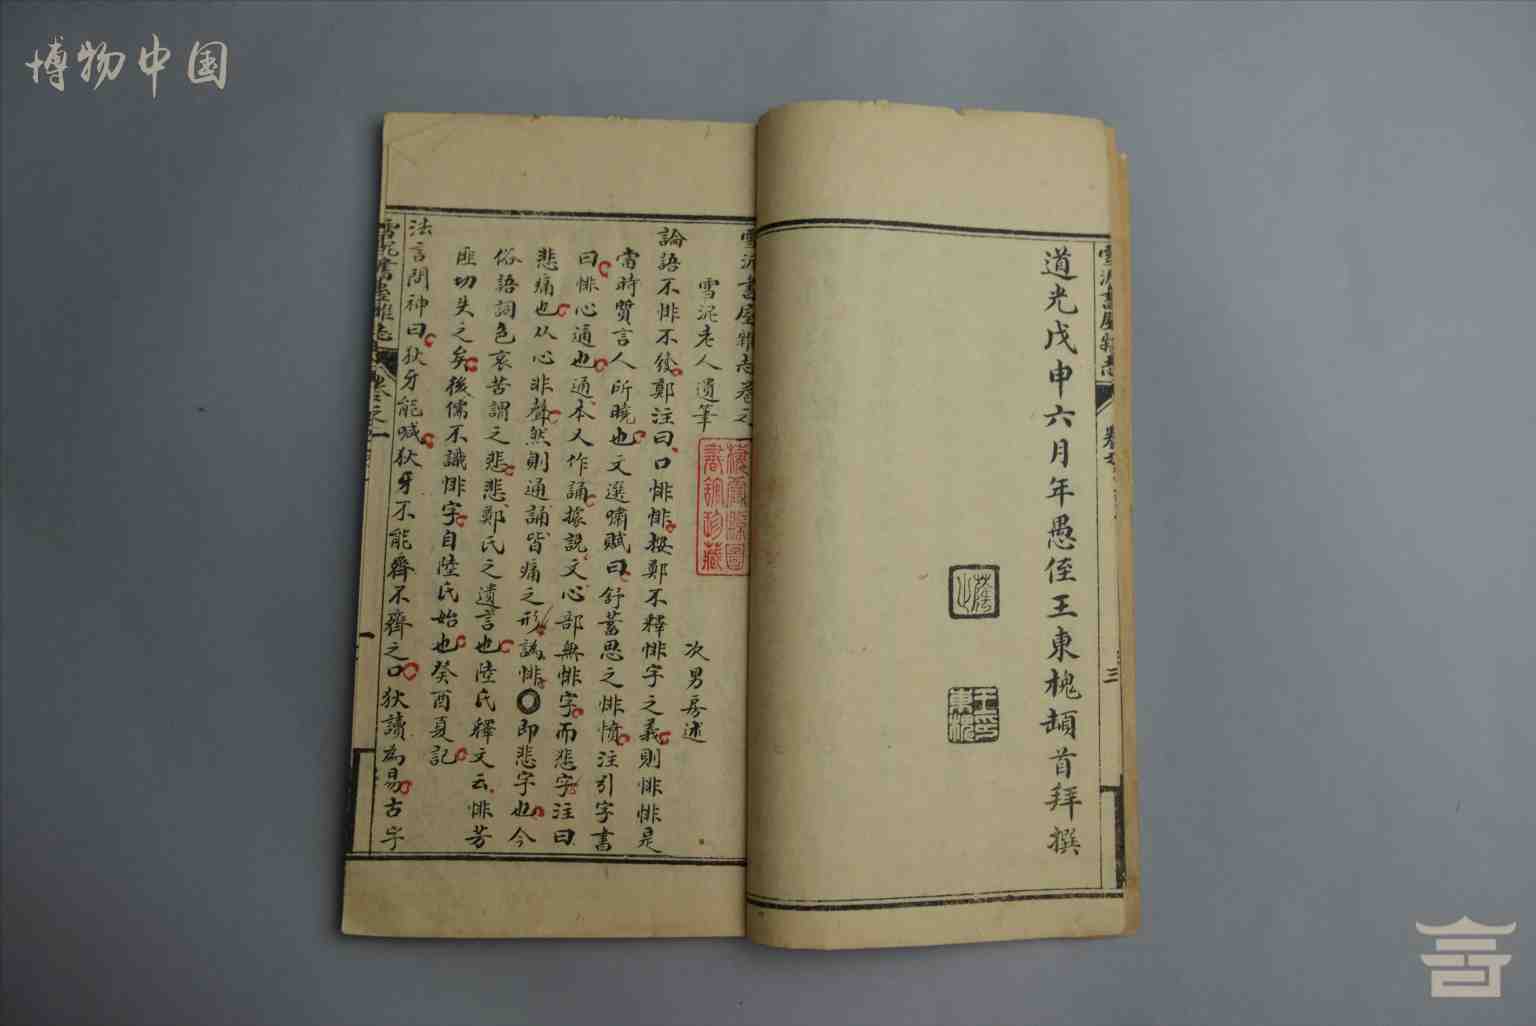 博物中国
道光戊申六月年愚侄王東槐頓首拜撰
王東槐印
雪泥書屋雜志
三
雪泥書屋雜志卷之
雪泥老人遺筆
次男房述
論語不悱不發鄭注曰口悱悱按鄭不釋悱字之義則悱悱是
當時質言人所曉也文選嘯賦曰舒蓄思之悱憤注引字書
曰悱心通也通本又作誦據説文心部無悱字而悲字注曰
悲痛也从心非聲然則通誦皆痛之形譌悱即悲字也今
俗語詞色哀苦謂之悲悲鄭氏之遺言也陸氏釋文云悱芳
匪切失之矣後儒不識悱字自陸氏始也癸酉夏記
法言問神曰狄牙能喊狄牙不能齊不齊之口狄讀為易古字
雪泥書屋雜志
卷之一
一